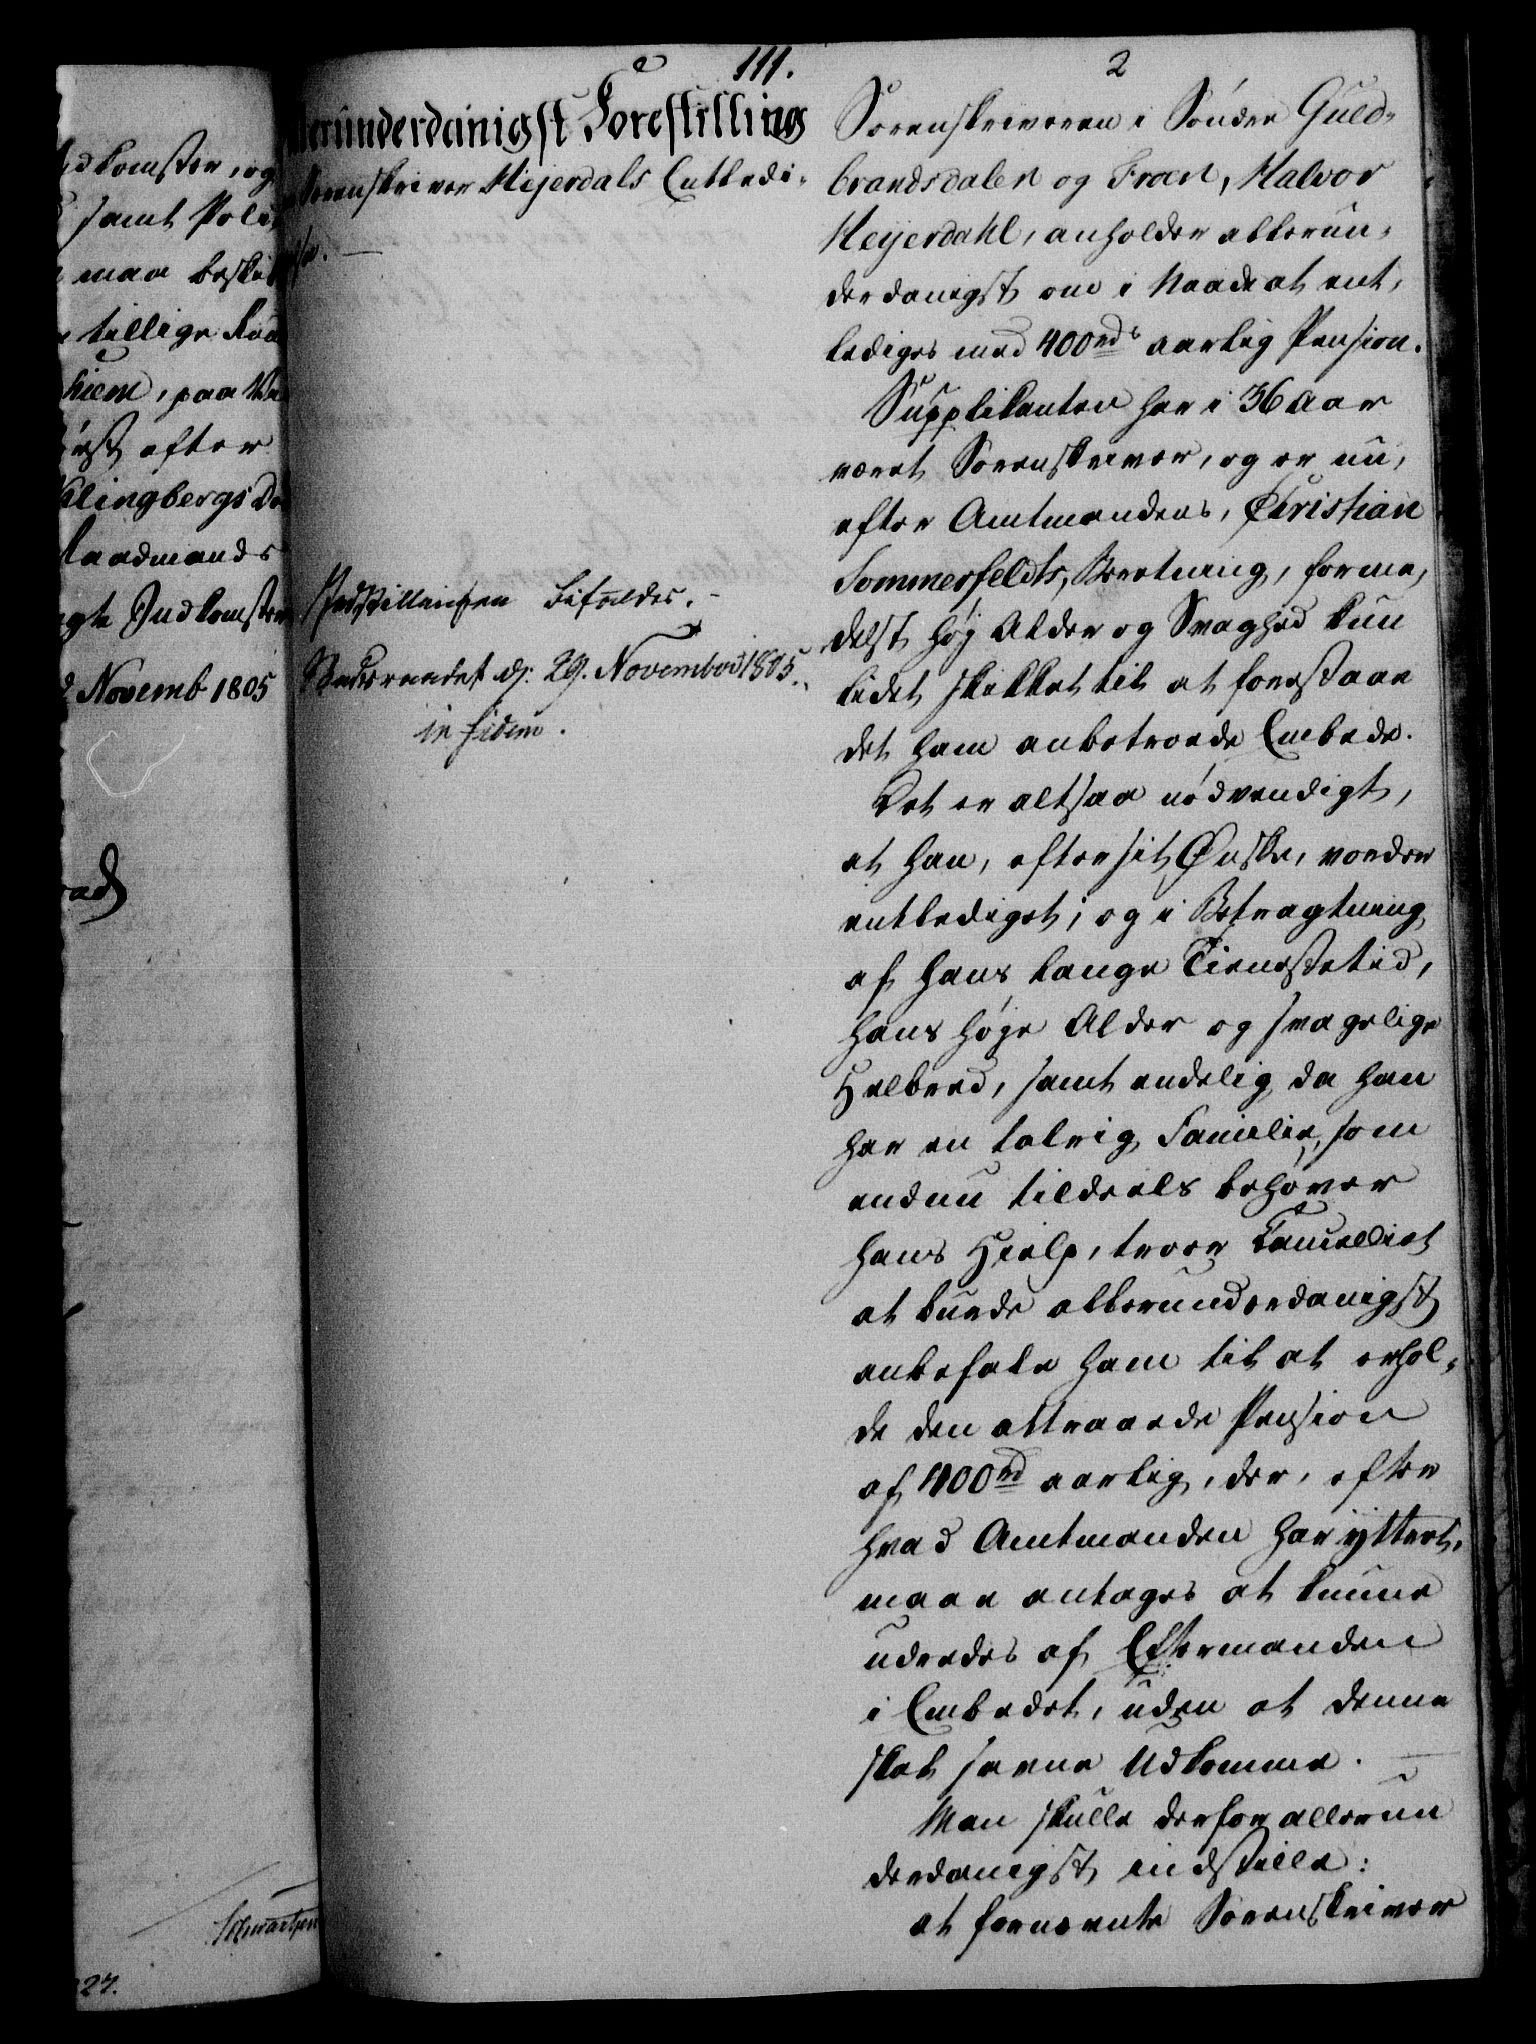 dkomster, og
samt Poli
maa beski
tillige Raa
hiem, paa Va
ørst efter
Klingbergs Dø
Raadmands
gte Indkomster
Novemb 1805
Schwartzen
27.
111.
erunderdanigst Forestilling
Sorenskriver Heyerdals Entledi-
se.
Indstillingen bifaldes.
Statsraadet d: 29. November 1805.
in fidem.
2
Sorenskriveren i Sönder Guld-
brandsdalen og Froen, Halvor
Heyerdahl, anholder allerun-
derdanigst om i Naade at ent-
lediges med 400 rds aarlig Pension.
Supplikanten har i 36 Aar
været Sorenskriver, og er nu,
efter Amtmandens, Christian
Sommerfeldts, Beretning, forme-
delst høj Alder og Svaghed kun
lidet skikket til at forestaae
det ham anbetroede Embede.
Det er altsaa nödvendigt,
at han, efter sit Ønske, vorder
entlediget; og i Betragtning
af hans lange Tienestetid,
hans høje Alder og svagelige
Helbred, samt endelig da han
har en talrig Familie, som
endnu tildeels behøver
hans Hielp, troer Cancelliet
at burde allerunderdanigst
anbefale ham til at erhol-
de den attraaede Pension
af 400 rd aarlig, der, efter
hvad Amtmanden har yttret,
maae antages at kunne
udredes af Eftermanden
i Embedet, uden at denne
skal savne Udkomme.
Man skulle derfor allerun
derdanigst indstille:
at fornævnte Sorenskriver